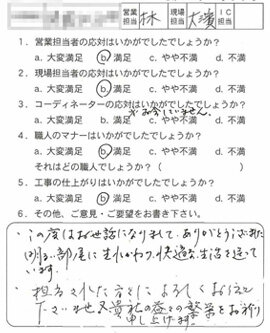 営業担当 林 現場担当 大濱 IC担当
1．営業担当者の応対はいかがでしたでしょうか？
a. 大変満足 b. 満足 c. やや不満 d. 不満
2．現場担当者の応対はいかがでしたでしょうか？
a. 大変満足 b. 満足 c. やや不満 d. 不満
3．コーディネーターの応対はいかがでしたでしょうか？
a. 大変満足 b. 満足 c. やや不満 d. 不満
4．職人のマナーはいかがでしたでしょうか？
a. 大変満足 b. 満足 c. やや不満 d. 不満
それはどの職人でしょうか？（ ）
5．工事の仕上がりはいかがでしたでしょうか？
a. 大変満足 b. 満足 c. やや不満 d. 不満
6．その他、ご意見・ご要望をお書き下さい。
・この度はお世話になりまして、ありがとうございました
明るい部屋に生れかわり、快適な生活を送って
います。
・担当された方々によろしくお伝え
下さいませ 又貴社の益々の繁栄をお祈り
申し上げます。